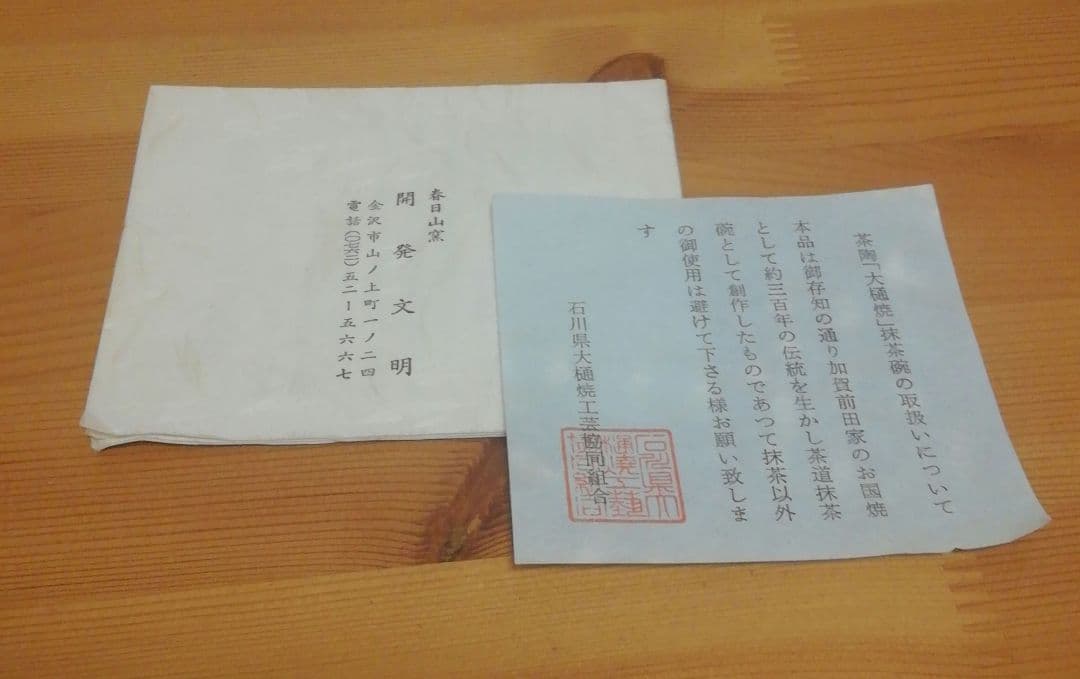 春日山窯
開発文明
金沢市山ノ上町一ノ二四
電話(〇七六二)五二ー五六六七
茶陶「大樋焼」抹茶碗の取扱いについて
本品は御存知の通り加賀前田家のお国焼
として約三百年の伝統を生かし茶道抹茶
碗として創作したものであつて抹茶以外
の御使用は避けて下さる様お願い致しま
す
石川県大樋焼工芸協同組合